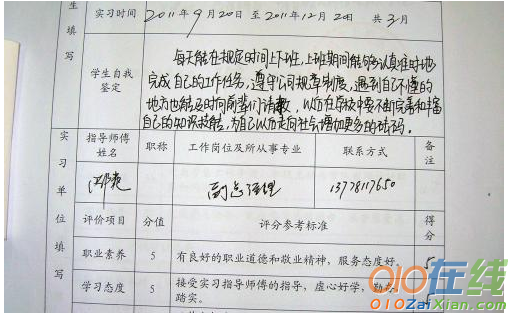 生 填 写
实习时间 2011年9月20日 至 2011年12月20日 共 3 月
学生自我鉴定
每天能在规定时间上下班,上班期间能够认真准时地
完成自己的工作任务,遵守公司规章制度,遇到自己不懂的
地方也能及时向前辈们请教,以后在学校中要不断完善和丰富
自己的知识技能,为自己以后走向社会增加更多的砝码。
实 习 单 位 填 写
指导师傅姓名 职称 工作岗位及所从事专业 联系方式 备注
副总经理 13778117650
评价项目 分值 评分参考标准 得分
职业素养 5 有良好的职业道德和敬业精神,服务态度好。 5
学习态度 5 接受实习指导师傅的指导,虚心好学,勤奋、踏实。
010在线
010ZaiXian.com